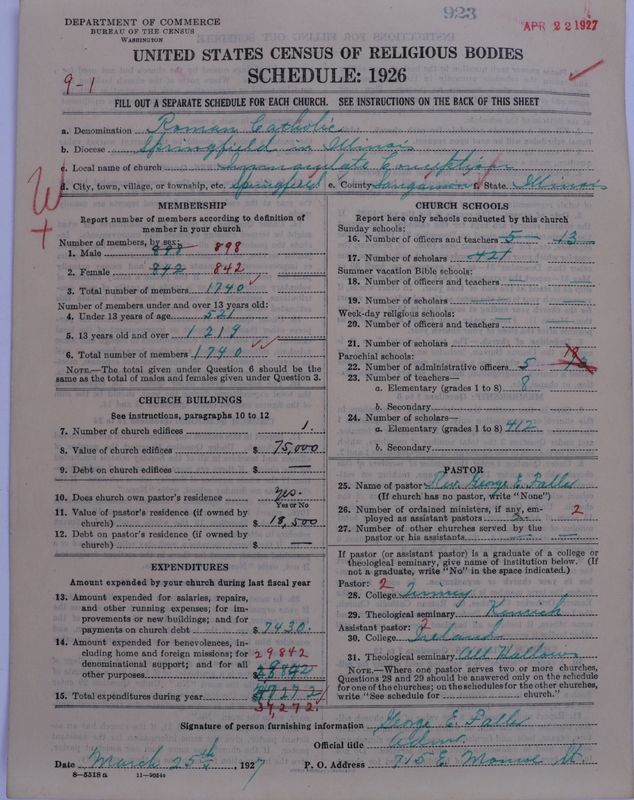 923
DEPARTMENT OF COMMERCE
BUREAU OF THE CENSUS
WASHINGTON
APR 22 1927
UNITED STATES CENSUS OF RELIGIOUS BODIES
SCHEDULE: 1926
9-1
FILL OUT A SEPARATE SCHEDULE FOR EACH CHURCH. SEE INSTRUCTIONS ON THE BACK OF THIS SHEET
a. Denomination Roman Catholic
b. Diocese Springfield in Illinois
c. Local name of church Immaculate Conception
d. City, town, village, or township, etc. Springfield e. County Sangamon f. State Illinois
MEMBERSHIP
Report number of members according to definition of member in your church
Number of members, by sex:
1. Male 898 898
2. Female 842 842
3. Total number of members 1740
Number of members under and over 13 years old:
4. Under 13 years of age 521
5. 13 years old and over 1219
6. Total number of members 1740
NOTE.—The total given under Question 6 should be the same as the total of males and females given under Question 3.
CHURCH BUILDINGS
See instructions, paragraphs 10 to 12
7. Number of church edifices 1.
8. Value of church edifices $ 75,000
9. Debt on church edifices $ —
10. Does church own pastor's residence yes.
Yes or No
11. Value of pastor's residence (if owned by church) $ 18,500
12. Debt on pastor's residence (if owned by church) $ —
EXPENDITURES
Amount expended by your church during last fiscal year
13. Amount expended for salaries, repairs, and other running expenses; for improvements or new buildings; and for payments on church debt $ 7430.
14. Amount expended for benevolences, including home and foreign missions; for denominational support; and for all other purposes 29842
$ 29842
15. Total expenditures during year $ 37272
37,272
CHURCH SCHOOLS
Report here only schools conducted by this church
Sunday schools:
16. Number of officers and teachers 5 13
17. Number of scholars 421
Summer vacation Bible schools:
18. Number of officers and teachers —
19. Number of scholars —
Week-day religious schools:
20. Number of officers and teachers —
21. Number of scholars —
Parochial schools:
22. Number of administrative officers 5
23. Number of teachers—
a. Elementary (grades 1 to 8) 8
b. Secondary
24. Number of scholars—
a. Elementary (grades 1 to 8) 412
b. Secondary
PASTOR
25. Name of pastor Rev. George E. Faller
(If church has no pastor, write "None")
26. Number of ordained ministers, if any, employed as assistant pastors 2 2
27. Number of other churches served by the pastor or his assistants —
If pastor (or assistant pastor) is a graduate of a college or theological seminary, give name of institution below. (If not a graduate, write "No" in the space indicated.)
Pastor: 2
28. College Quincy
29. Theological seminary Kenrick
Assistant pastor: 2
30. College Ireland
31. Theological seminary All Hallows
NOTE.—Where one pastor serves two or more churches, Questions 28 and 29 should be answered only on the schedule for one of the churches; on the schedules for the other churches, write "See schedule for ........ church."
Signature of person furnishing information George E. Faller
Official title
Date March 25th, 1927 P. O. Address 715 E. Monroe St.
8-5318a 11-9034